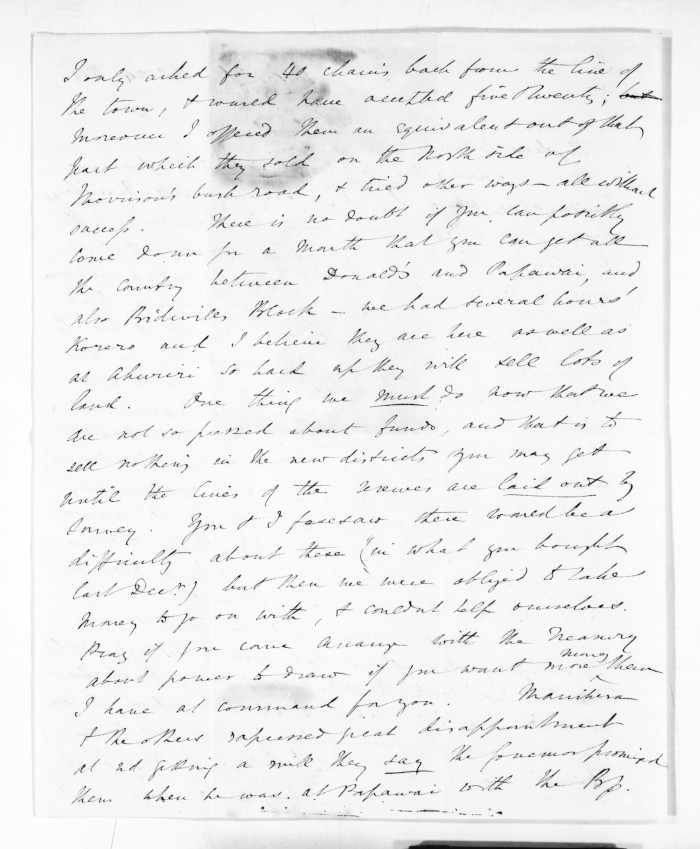 I only asked for 40 chains back from the line of
the town, & would have accepted five & twenty; but
moreover I offered them an equivalent out of that
part which they sold on the North side of
Morrison's bush road, & tried other ways – all without
success. There is no doubt if you can possibly
come down for a month that you can get all
the country between Donald's and Papawai, and
also Bidwill's Block – we had several hours'
Korero and I believe they are here as well as
at Ahuriri so hard up they will sell lots of
land. One thing we must do now that we
are not so pressed about funds, and that is to
sell nothing in the new districts you may get
until the lines of the reserves are laid out by
Survey. You & I foresaw there would be a
difficulty about these (in what you bought
last Decr.) but then we were obliged to take
money to go on with, & couldn't help ourselves.
Pray if you come arrange with the Treasury
about power to draw if you want more money than
I have at command for you. Manihera
& the others expressed great disappointment
at not getting a mill they say the Governor promised
them when he was at Papawai with the Bp.